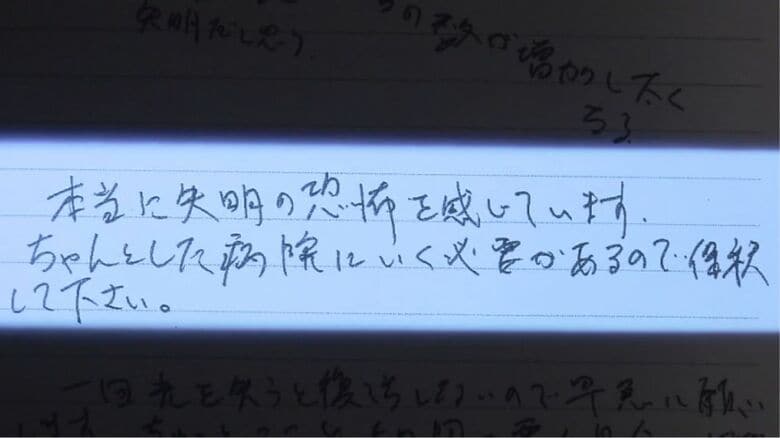 失明だと思う
の数が増加し太く
なる
本当に失明の恐怖を感じています.
ちゃんとした病院にいく必要があるので保釈
して下さい。
一回光を失うと復活しないので早急に願い